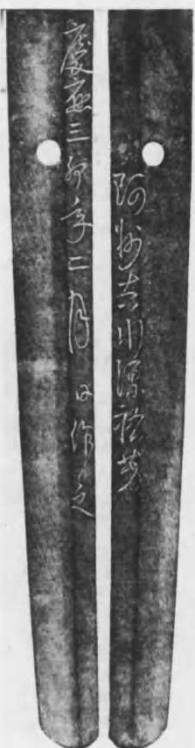 阿州吉川源祐芳
慶應三卯年二月日作之